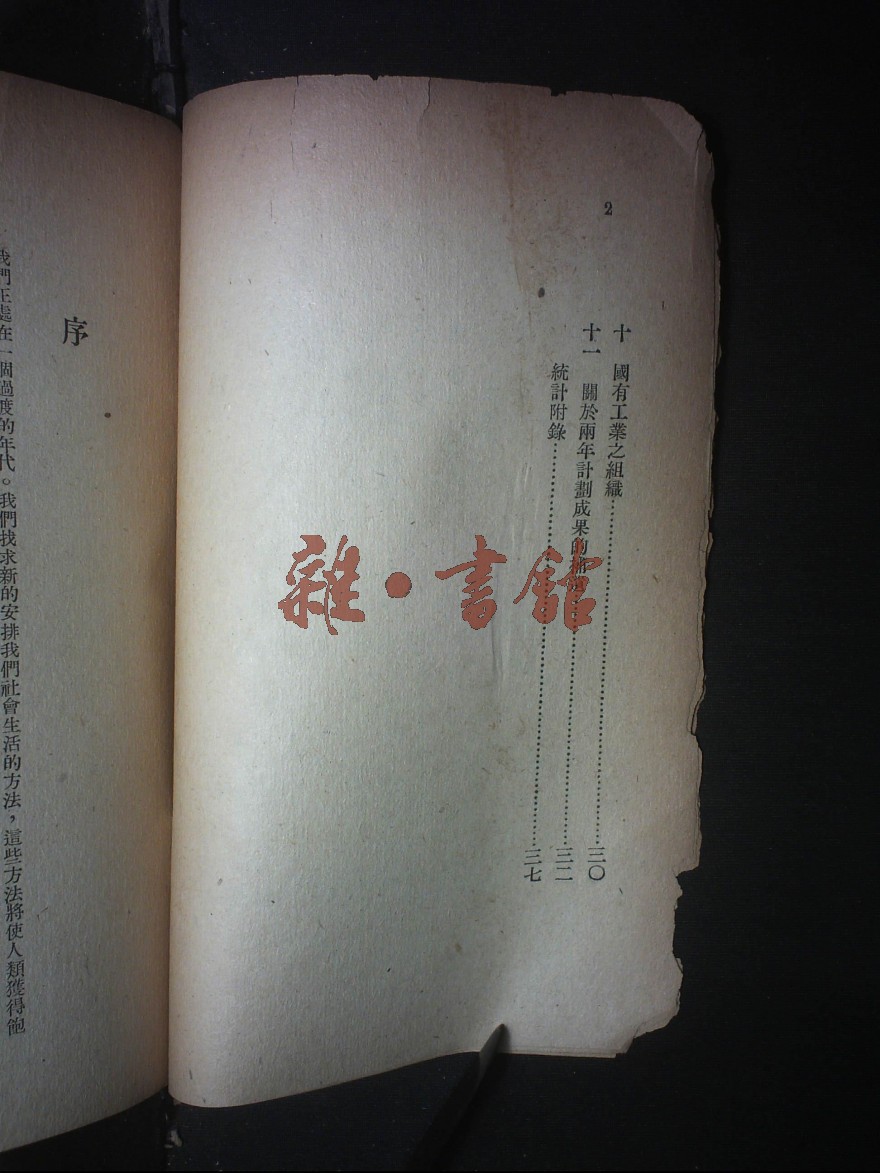 2
十　國有工業之組織……三〇
十一　關於兩年計劃成果的……三二
統計附錄……三七
序
我們正處在一個過渡的年代。我們找求新的安排我們社會生活的方法，這些方法將使人類獲得飽
雜·書館